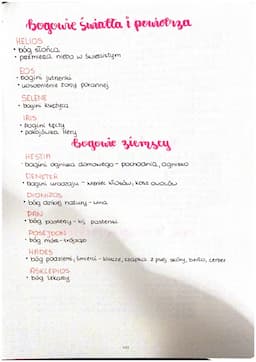 Bogowie światła i powietrza
HELIOS
• bóg słońca
• przemierza niebo w świetlistym
EOS
• bogini jutrzenki
• uosobienie zorzy porannej
SELENE
• bogini księżyca
IRIS
• bogini tęczy
• pokojówka Hery
Bogowie ziemscy
HESTIA
• bogini ogniska domowego - pochodnia, ognisko
DEMETER
• bogini urodzaju - wieniec kłosów, kosz owoców
DIONIZOS
• bóg dzikiej natury - wina
PAN
• bóg pasterzy - kij pasterski
POSEJDON
• bóg mórz - trójząb
HADES
• bóg podziemi, śmierci - klucze, czapka z psiej skóry, berło, cerber
ASKLEPIOS
• bóg lekarzy